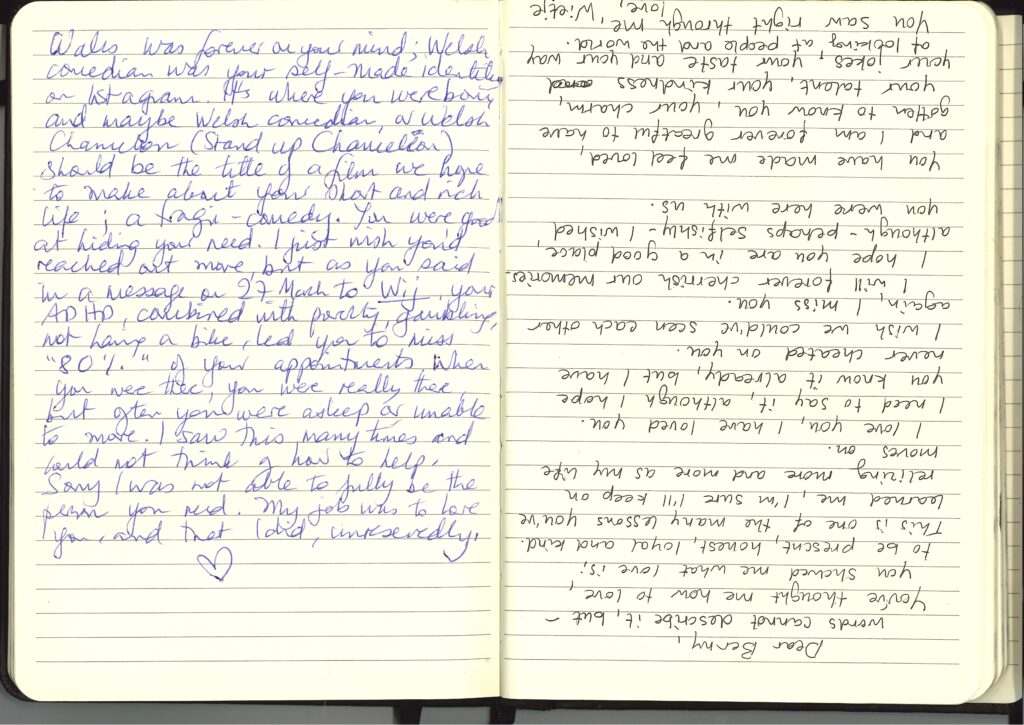 Wales was forever on your mind; Welsh
comedian was your self-made identity
on Instagram. It's where you were born
and maybe Welsh comedian, or Welsh
Chameleon (Stand up Chameleon)
should be the title of a film we hope
to make about your short and rich
life; a tragi-comedy. You were good
at hiding your need. I just wish you'd
reached out more, but as you said
in a message on 27 March to Wij, your
ADHD, combined with poverty, gambling,
not having a bike, led you to miss
"80%" of your appointments. When
you were there, you were really there,
but often you were asleep or unable
to move. I saw this many times and
could not think of how to help.
Sorry I was not able to fully be the
person you need. My job was to love
you, and that I did, unreservedly.
♡
Dear Benny,
words cannot describe it, but –
You've thought me how to love,
you showed me what love is;
to be present, honest, loyal and kind.
This is one of the many lessons you've
learned me, I'm sure I'll keep on
relizing more and more as my life
moves on.
I love you, I have loved you.
I need to say it, although I hope
you know it already, but I have
never cheated on you.
I wish we could've seen each other
again, I miss you.
I will forever cherrish our memories.
I hope you are in a good place,
although - perhaps selfishly - I wished
you were here with us.
You have made me feel loved,
and I am forever greatful to have
gotten to know you, your charm,
your talent, your kindness
your jokes, your taste and your way
of looking at people and the world.
You saw right through me,
love, Wietje